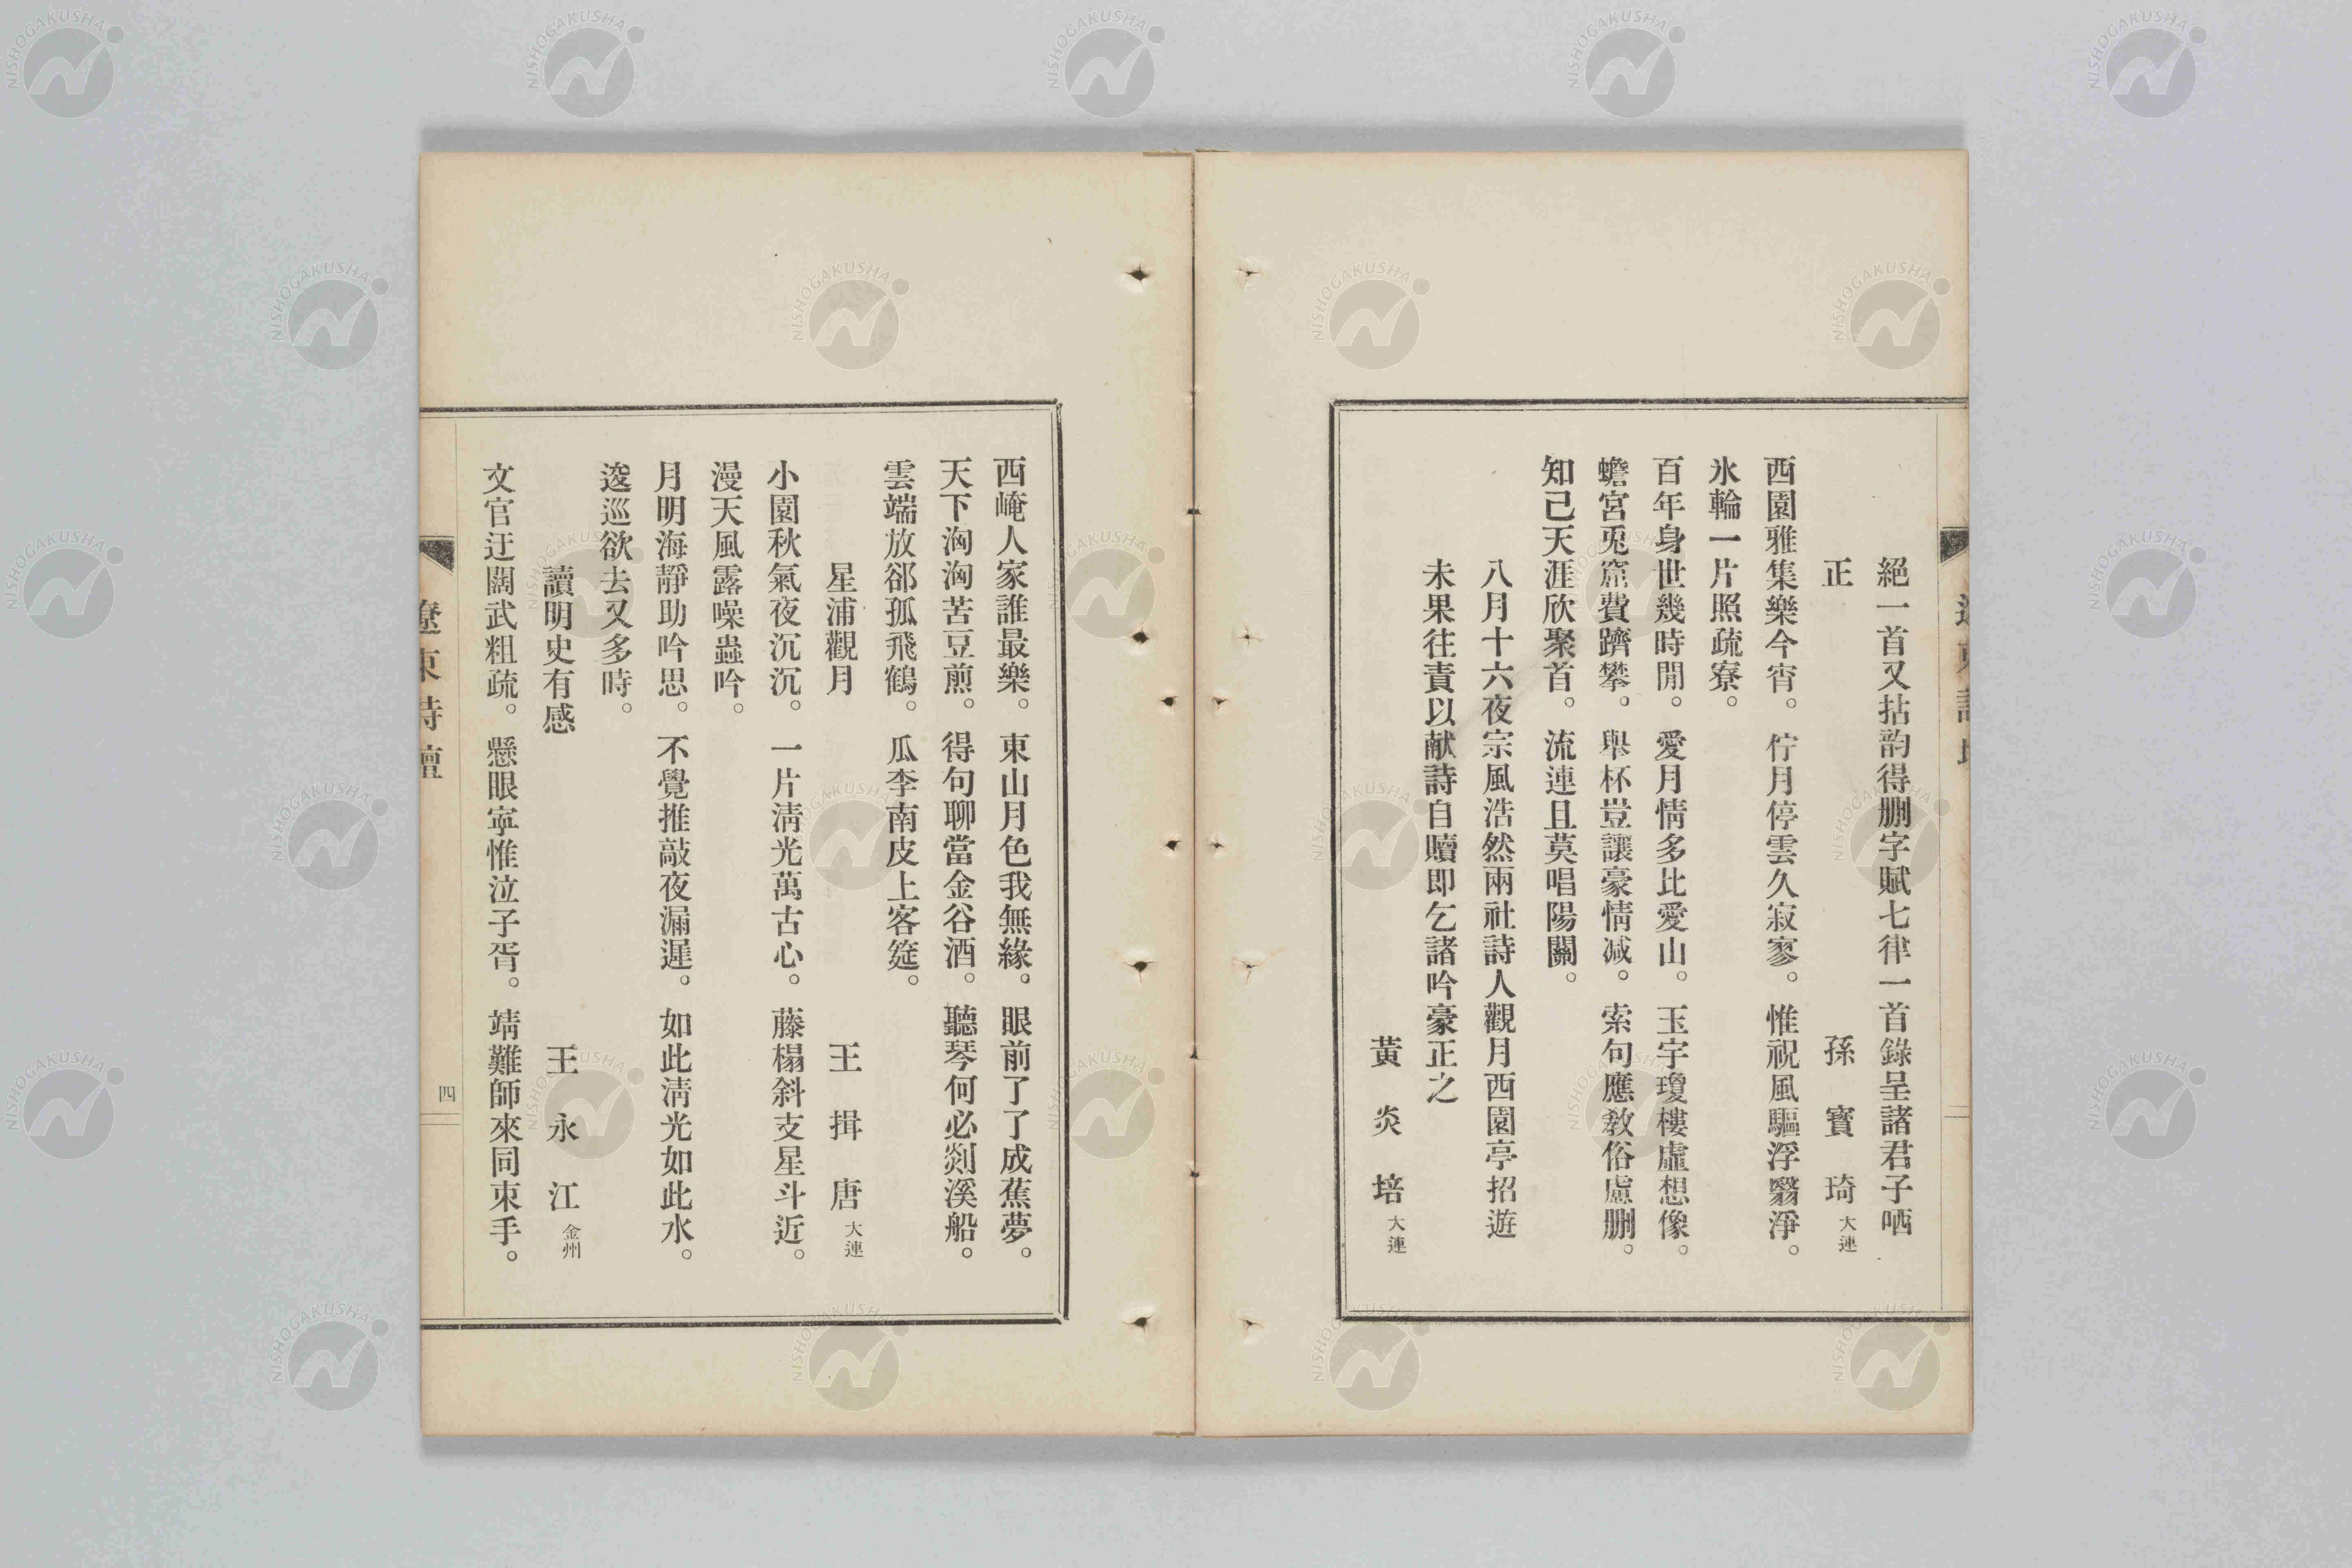 絕一首又拈韵得刪字賦七律一首錄呈諸君子哂
正 孫寶琦大連
西園雅集樂今宵。佇月停雲久寂寥。惟祝風驅浮翳淨。
氷輪一片照疏寮。
百年身世幾時閒。愛月情多比愛山。玉宇瓊樓虛想像。
蟾宮兎窟費躋攀。舉杯豈讓豪情减。索句應敎俗慮刪。
知己天涯欣聚首。流連且莫唱陽關。
八月十六夜宗風浩然兩社詩人觀月西園亭招遊
未果往責以献詩自贖即乞諸吟豪正之
黃炎培大連
西崦人家誰最樂。東山月色我無緣。眼前了了成蕉夢。
天下洶洶苦豆煎。得句聊當金谷酒。聽琴何必剡溪船。
雲端放郤孤飛鶴。瓜李南皮上客筵。
星浦觀月 王揖唐大連
小園秋氣夜沉沉。一片淸光萬古心。藤榻斜支星斗近。
漫天風露噪蟲吟。
月明海靜助吟思。不覺推敲夜漏遲。如此淸光如此水。
逡巡欲去又多時。
讀明史有感 王永江金州
文官迂闊武粗疏。懸眼寧惟泣子胥。靖難師來同束手。
遼東詩壇
四
NISHOGAKUSHA